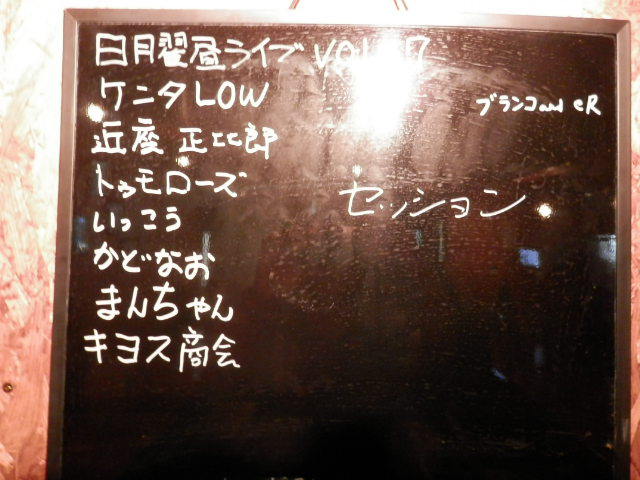 日月翟昼ライブ vol. 7
ケニタLOW
近座 正比郎
トゥモローズ
いっこう
かどなお
まんちゃん
キヨス商会
ブランコand eR
セッション